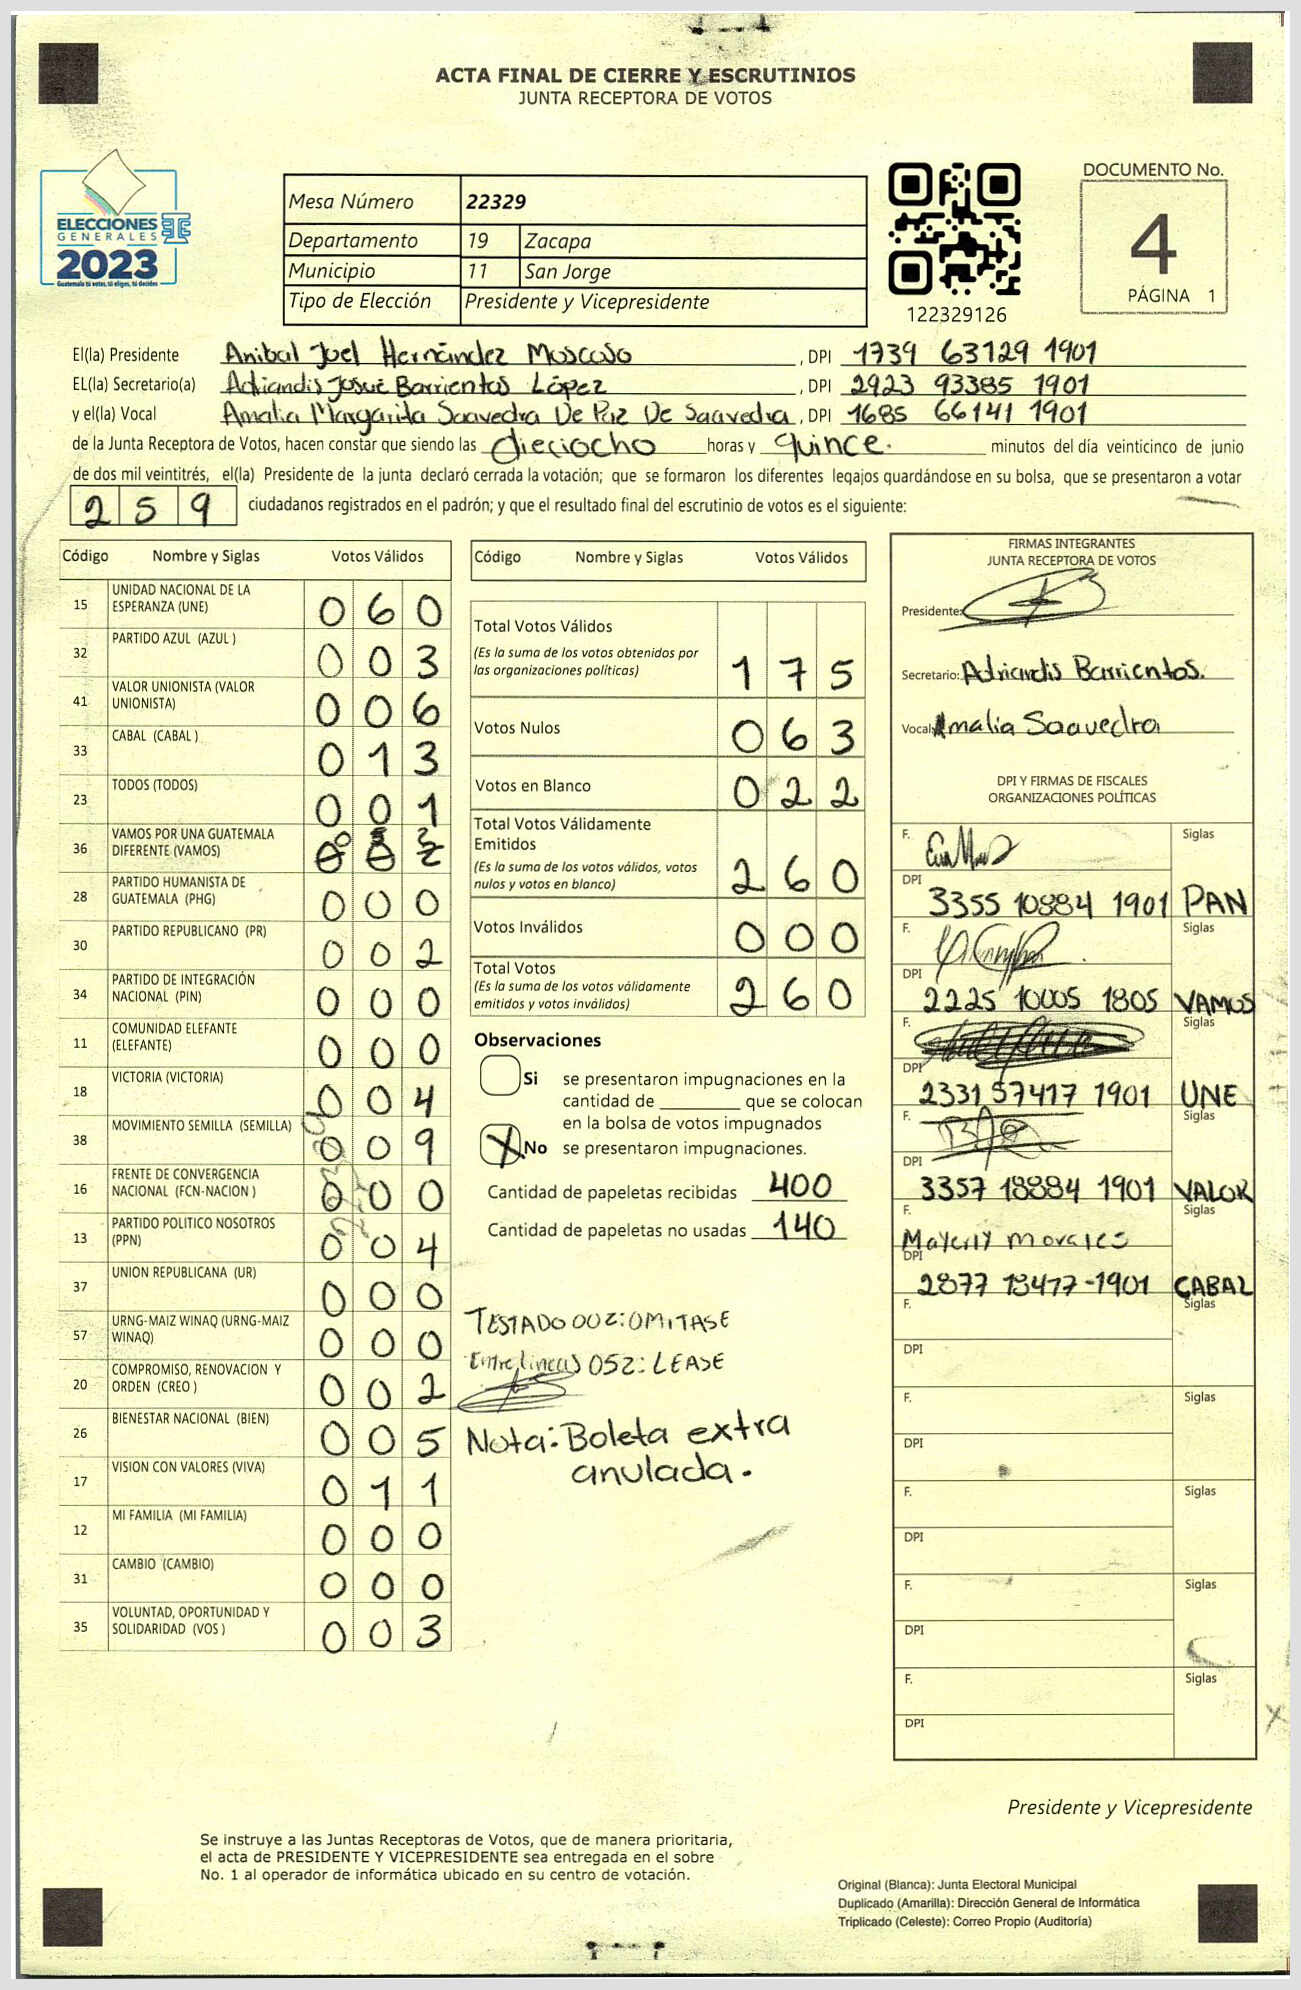 ACTA FINAL DE CIERRE Y ESCRUTINIOS
JUNTA RECEPTORA DE VOTOS
ELECCIONES
GENERALES
2023
Guatemala tú votas, tú eliges, tú decides
Mesa Número 22329
Departamento 19 Zacapa
Municipio 11 San Jorge
Tipo de Elección Presidente y Vicepresidente
122329126
DOCUMENTO No.
4
PÁGINA 1
El(la) Presidente Anibal Joel Hernández Moscoso, DPI 1739 63129 1901
EL(la) Secretario(a) Adriandis Josué Barrientos López, DPI 2923 93385 1901
y el(la) Vocal Amalia Margarita Saavedra De Paz De Saavedra, DPI 1685 66141 1901
de la Junta Receptora de Votos, hacen constar que siendo las dieciocho horas y quince. minutos del día veinticinco de junio
de dos mil veintitrés, el(la) Presidente de la junta declaró cerrada la votación; que se formaron los diferentes legajos guardándose en su bolsa, que se presentaron a votar
259 ciudadanos registrados en el padrón; y que el resultado final del escrutinio de votos es el siguiente:
Código Nombre y Siglas Votos Válidos
15 UNIDAD NACIONAL DE LA ESPERANZA (UNE) 060
32 PARTIDO AZUL (AZUL ) 003
41 VALOR UNIONISTA (VALOR UNIONISTA) 006
33 CABAL (CABAL ) 013
23 TODOS (TODOS) 001
36 VAMOS POR UNA GUATEMALA DIFERENTE (VAMOS) 052
28 PARTIDO HUMANISTA DE GUATEMALA (PHG) 000
30 PARTIDO REPUBLICANO (PR) 002
34 PARTIDO DE INTEGRACIÓN NACIONAL (PIN) 000
11 COMUNIDAD ELEFANTE (ELEFANTE) 000
18 VICTORIA (VICTORIA) 004
38 MOVIMIENTO SEMILLA (SEMILLA) 009
16 FRENTE DE CONVERGENCIA NACIONAL (FCN-NACION ) 000
13 PARTIDO POLITICO NOSOTROS (PPN) 004
37 UNION REPUBLICANA (UR) 000
57 URNG-MAIZ WINAQ (URNG-MAIZ WINAQ) 000
20 COMPROMISO, RENOVACION Y ORDEN (CREO ) 002
26 BIENESTAR NACIONAL (BIEN) 005
17 VISION CON VALORES (VIVA) 011
12 MI FAMILIA (MI FAMILIA) 000
31 CAMBIO (CAMBIO) 000
35 VOLUNTAD, OPORTUNIDAD Y SOLIDARIDAD (VOS ) 003
Código Nombre y Siglas Votos Válidos
Total Votos Válidos
(Es la suma de los votos obtenidos por
las organizaciones políticas) 175
Votos Nulos 063
Votos en Blanco 022
Total Votos Válidamente
Emitidos
(Es la suma de los votos válidos, votos
nulos y votos en blanco) 260
Votos Inválidos 000
Total Votos
(Es la suma de los votos válidamente
emitidos y votos inválidos) 260
Observaciones
Si se presentaron impugnaciones en la
cantidad de ________ que se colocan
en la bolsa de votos impugnados
X No se presentaron impugnaciones.
Cantidad de papeletas recibidas 400
Cantidad de papeletas no usadas 140
TESTADO 002: OMITASE
Entre lineas 052: LEASE
Nota: Boleta extra
anulada.
FIRMAS INTEGRANTES
JUNTA RECEPTORA DE VOTOS
Presidente:
Secretario: Adriandis Barrientos.
Vocal: Amalia Saavedra
DPI Y FIRMAS DE FISCALES
ORGANIZACIONES POLÍTICAS
F. Siglas
DPI 3355 10884 1901 PAN
F. Siglas
DPI 2225 10005 1805 VAMOS
F. Siglas
DPI 2331 57417 1901 UNE
F. Siglas
DPI 3357 18884 1901 VALOR
F. Mayerly Morales Siglas
DPI 2877 18477-1901 CABAL
F. Siglas
DPI
F. Siglas
DPI
F. Siglas
DPI
F. Siglas
DPI
F. Siglas
DPI
Presidente y Vicepresidente
Se instruye a las Juntas Receptoras de Votos, que de manera prioritaria,
el acta de PRESIDENTE Y VICEPRESIDENTE sea entregada en el sobre
No. 1 al operador de informática ubicado en su centro de votación.
Original (Blanca): Junta Electoral Municipal
Duplicado (Amarilla): Dirección General de Informática
Triplicado (Celeste): Correo Propio (Auditoría)